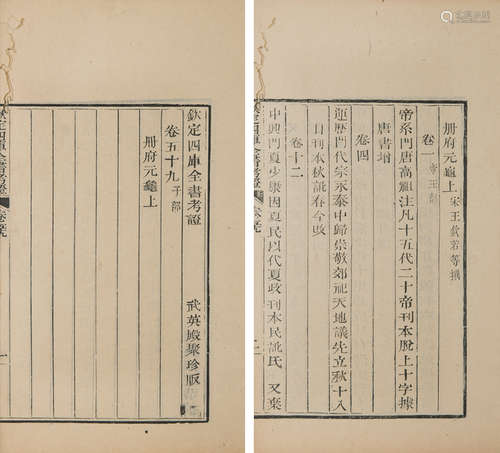 欽定四庫全書考證
卷五十九 子部
武英殿聚珍版
冊府元龜上
欽定四庫全書考證
卷五十九
一
冊府元龜上 宋王欽若等撰
卷一 帝王部
帝系門唐高祖注凡十五代二十帝刊本脫上十字據
唐書增
卷四
運歷門代宗永泰中歸崇敬郊祀天地議先立秋十八
日刊本秋訛春今改
卷十二
中興門夏少康因夏民以代夏政刊本民訛氏 又棄